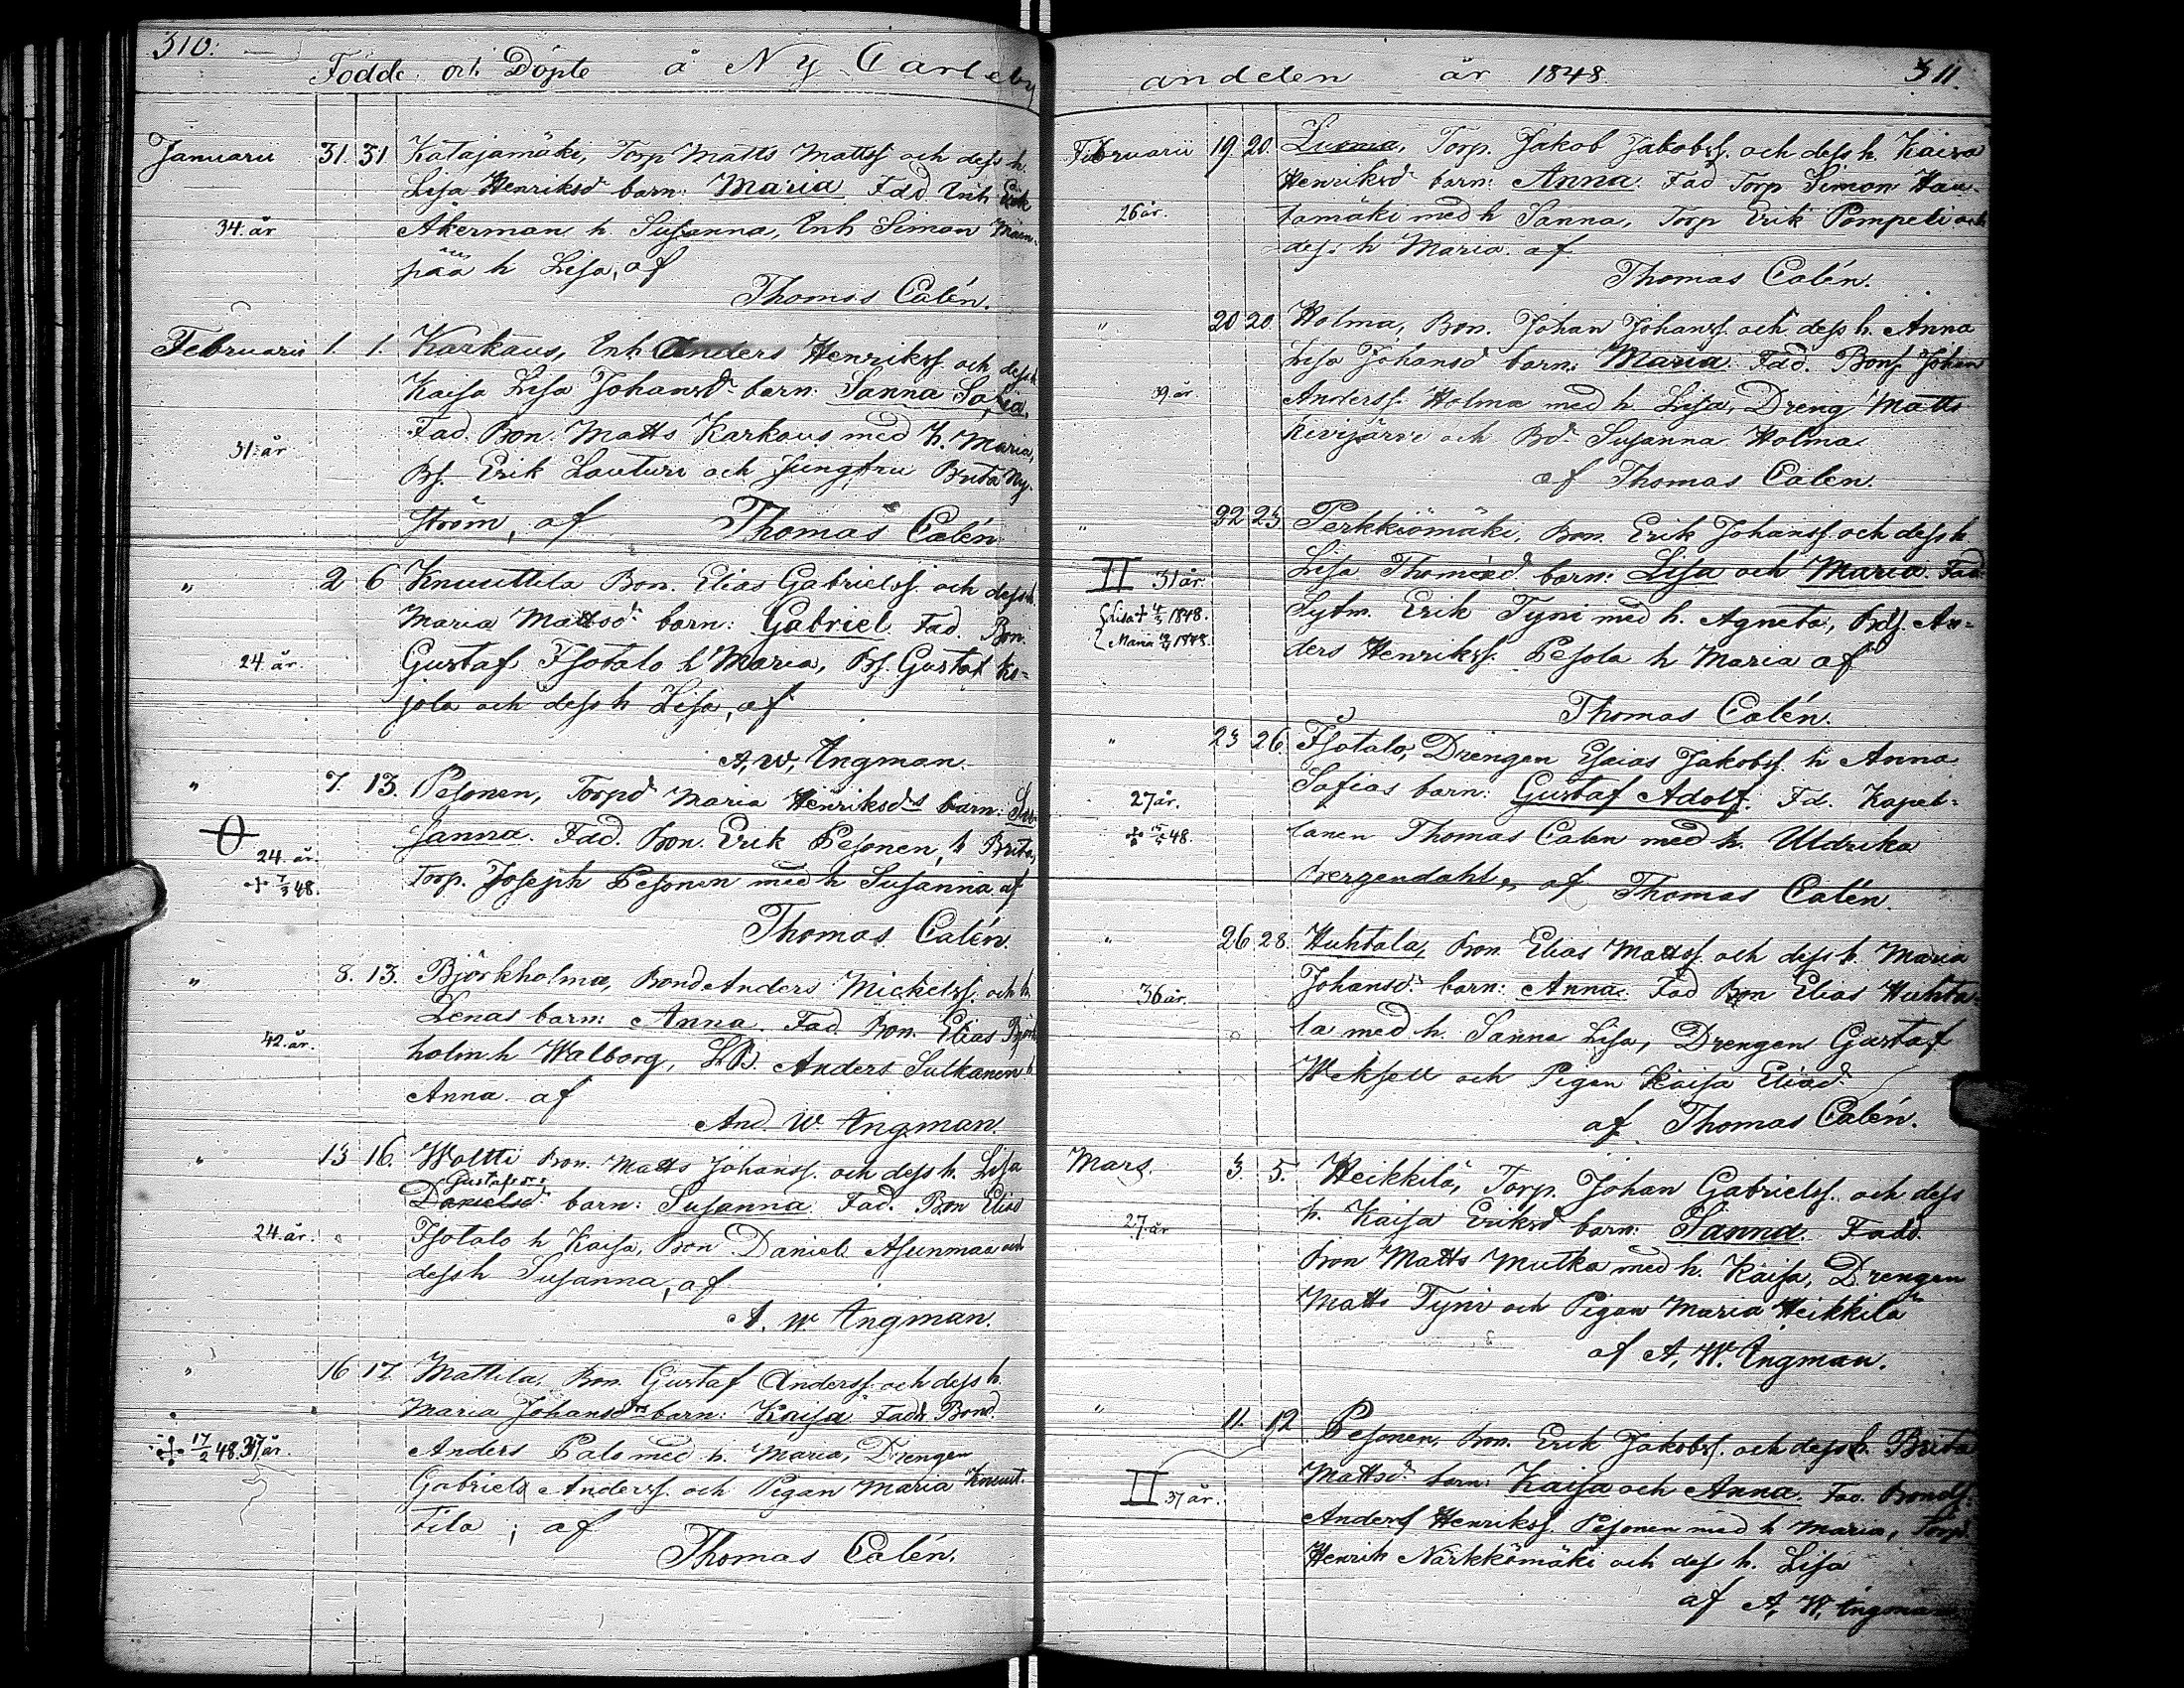 310.
Födde och Döpte å Ny Carleby
Januarii 31. 31 Katajamäki, Torp Matts Mattss. och dess h.
Lisa Henriksd. barn: Maria Fad. Inh Erik
34. år Åkerman h Susanna, Inh Simon
pää h Lisa, af
Thomas Calén.
Februarii 1. 1. Karkaus, Inh Anders Henrikss. och dess h
Kaisa Lisa Johansd. barn: Sanna Sofia,
Fad. Bon. Matts Karkaus med h. Maria,
31. år Bs. Erik Lauturi och Jungfru Brita Ny-
ström, af Thomas Calén
" 2 6 Knuuttila Bon. Elias Gabrielss. och dess h.
Maria Mattsd. barn: Gabriel Fad. Bon.
24. år. Gustaf Isotalo h Maria, Bs. Gustaf Ko-
jola och dess h Lisa, af
A. W. Ingman.
" 7. 13. Pesonen, Torpd Maria Henriksds barn: Su-
sanna. Fad. Bon. Erik Pesonen, h Brita,
24. år.
+ 7/3 48. Torp. Joseph Pesonen med h Susanna af
Thomas Calén.
" 8. 13. Björkholma, Bond Anders Mickelss. och h.
Lenas barn: Anna. Fad. Bon. Elias Björk-
42. år. holm h Walborg, Anders Sulkanen h
Anna. af
And. W. Ingman.
" 13 16. Woltti Bon. Matts Johanss. och dess h. Lisa
Gustafsdr
Danielsd. barn: Susanna. Fad. Bon Elias
24. år. Isotalo h Kaisa, Bon Daniel Asunmaa och
dess h Susanna, af
A. W. Ingman.
" 16 17. Mattila, Bon. Gustaf Anderss. och dess h.
Maria Johansdrs barn: Kaisa Fadd. Bond.
+ 17/2 48. 37 år. Anders Palo med h. Maria, Drengen
Gabriel Anderss. och Pigan Maria Knuut-
tila; af
Thomas Calén.
andelen år 1848. 311.
Februarii 19. 20. Luoma, Torp. Jakob Jakobss. och dess h. Kaisa
Henriksd. barn: Anna. Fad Torp Simon Hau-
26 år. tamäki med h Sanna, Torp Erik Pompeli och
dess h Maria. af
Thomas Calén.
" 20 20. Holma, Bon. Johan Johanss. och dess h. Anna
Lisa Johansd. barn: Maria. Fad. Bons. Johan
39 år Anderss. Holma med h Lisa, Dreng Matts
Kivijärvi och Bd. Susanna Holma
af Thomas Calén.
" 22 23. Perkkiömäki, Bon. Erik Johanss. och dess h
II 31 år. Lisa Thomasd. barn: Lisa och Maria. Fad.
Lisa + 4/5 1848. Sytm. Erik Tyni med h. Agneta, Bds. An-
Maria 1848. ders Henrikss. Pesola h Maria af
Thomas Calén.
" 23 26. Isotalo, Drengen Esaias Jakobss. h Anna
27 år. Sofias barn: Gustaf Adolf. Fd. Kapel-
+ 15/5 48. lanen Thomas Calen med h. Uldrika
Bergendahl, af Thomas Calén.
" 26 28. Huhtala, Bon. Elias Mattss. och dess h. Maria
36 år. Johansd. barn: Anna. Fad Bon Elias Huhta-
la med h. Sanna Lisa, Drengen Gustaf
Weksell och Pigan Kaisa Eliasd.
af Thomas Calén.
Mars. 3. 5. Heikkilä, Torp. Johan Gabrielss. och dess
27. år h. Kaisa Eriksd. barn: Sanna. Fadd.
Bon Matts Mutka med h. Kaisa, Drengen
Matts Tyni och Pigan Maria Heikkilä
af A. W. Ingman.
" 11. 12 Pesonen, Bon. Erik Jakobss. och dess h. Brita
II 37 år. Mattsd. barn: Kaisa och Anna. Fad. Bonds.
Anders Henrikss. Pesonen med h Maria, Torp.
Henrik Närkkömäki och dess h. Lisa
af A. W. Ingman